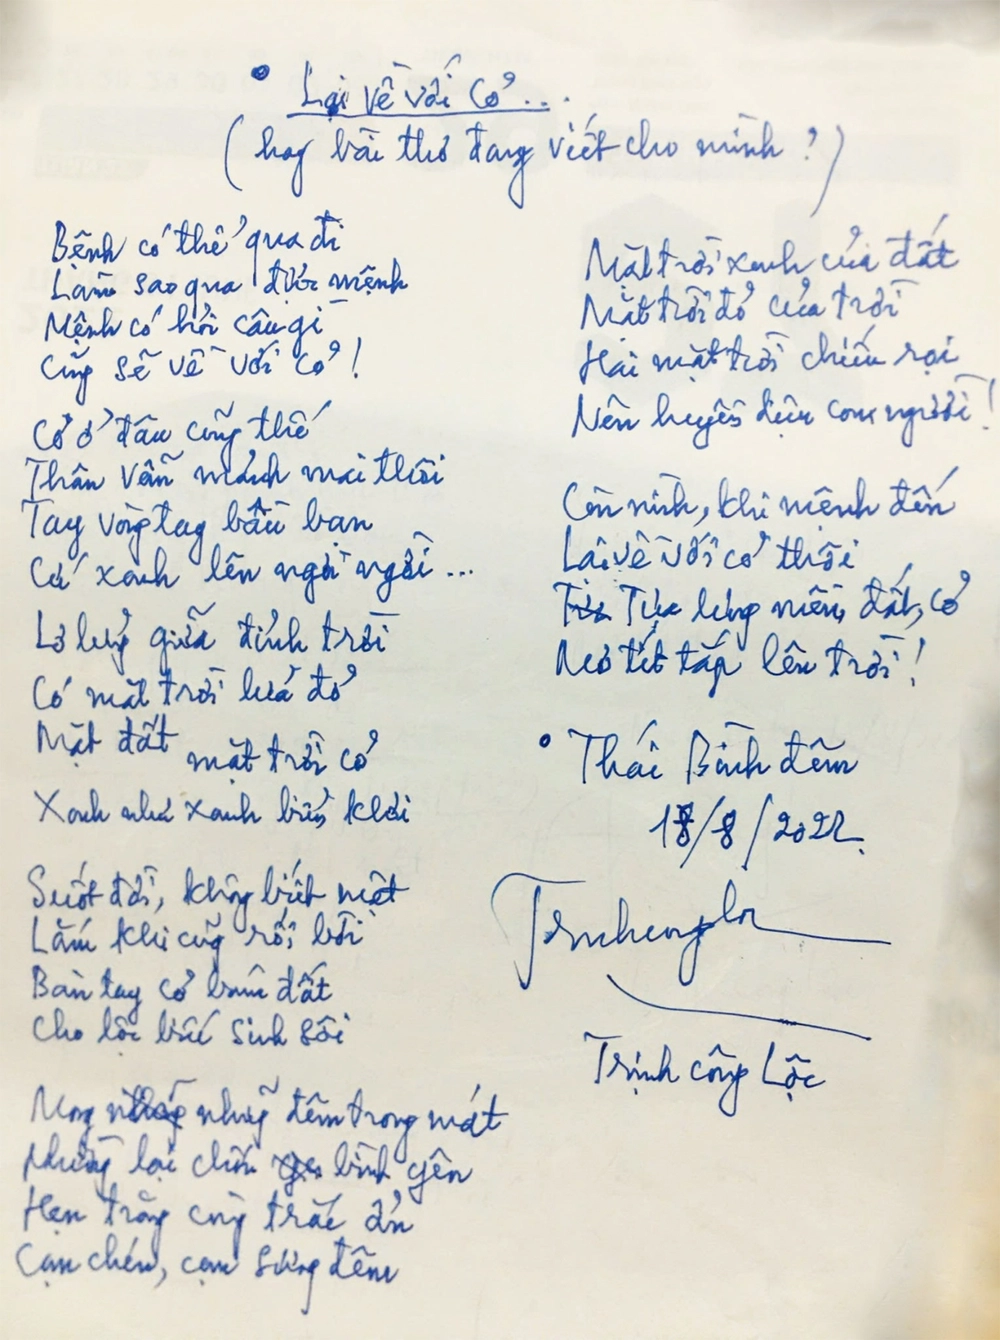 Lại về với cỏ...
(hay bài thơ đang viết cho mình?)
Bệnh có thể qua đi
Làm sao qua được mệnh
Mệnh có hỏi câu gì
Cũng sẽ về với cỏ!
Cỏ ở đâu cũng thế
Thân vẫn mảnh mai thôi
Tay vòng tay bầu bạn
Cứ xanh lên ngời ngời...
Lơ lửng giữa đỉnh trời
Có mặt trời lửa đỏ
Mặt đất mặt trời cỏ
Xanh như xanh biển khơi
Suốt đời, không biết mệt
Lắm khi cũng rối bời
Bàn tay cỏ bấm đất
Cho lộc biếc sinh sôi
Mong những đêm trong mát
Nhường lại chốn bình yên
Hẹn trăng cùng trắc ẩn
Cạn chén, cạn sương đêm
Mặt trời xanh của đất
Mặt trời đỏ của trời
Hai mặt trời chiếu rọi
Nên huyền diệu con người!
Còn mình, khi mệnh đến
Lại về với cỏ thôi
Tựa lưng miền đất, cỏ
Mơ tít tắp lên trời!
Thái Bình đêm
18/8/2022.
Trịnh Công Lộc